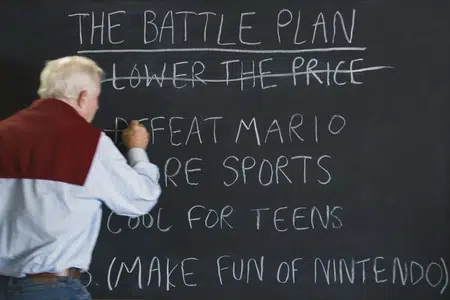 THE BATTLE PLAN
LOWER THE PRICE
DEFEAT MARIO
SPORTS
COOL FOR TEENS
(MAKE FUN OF NINTENDO)